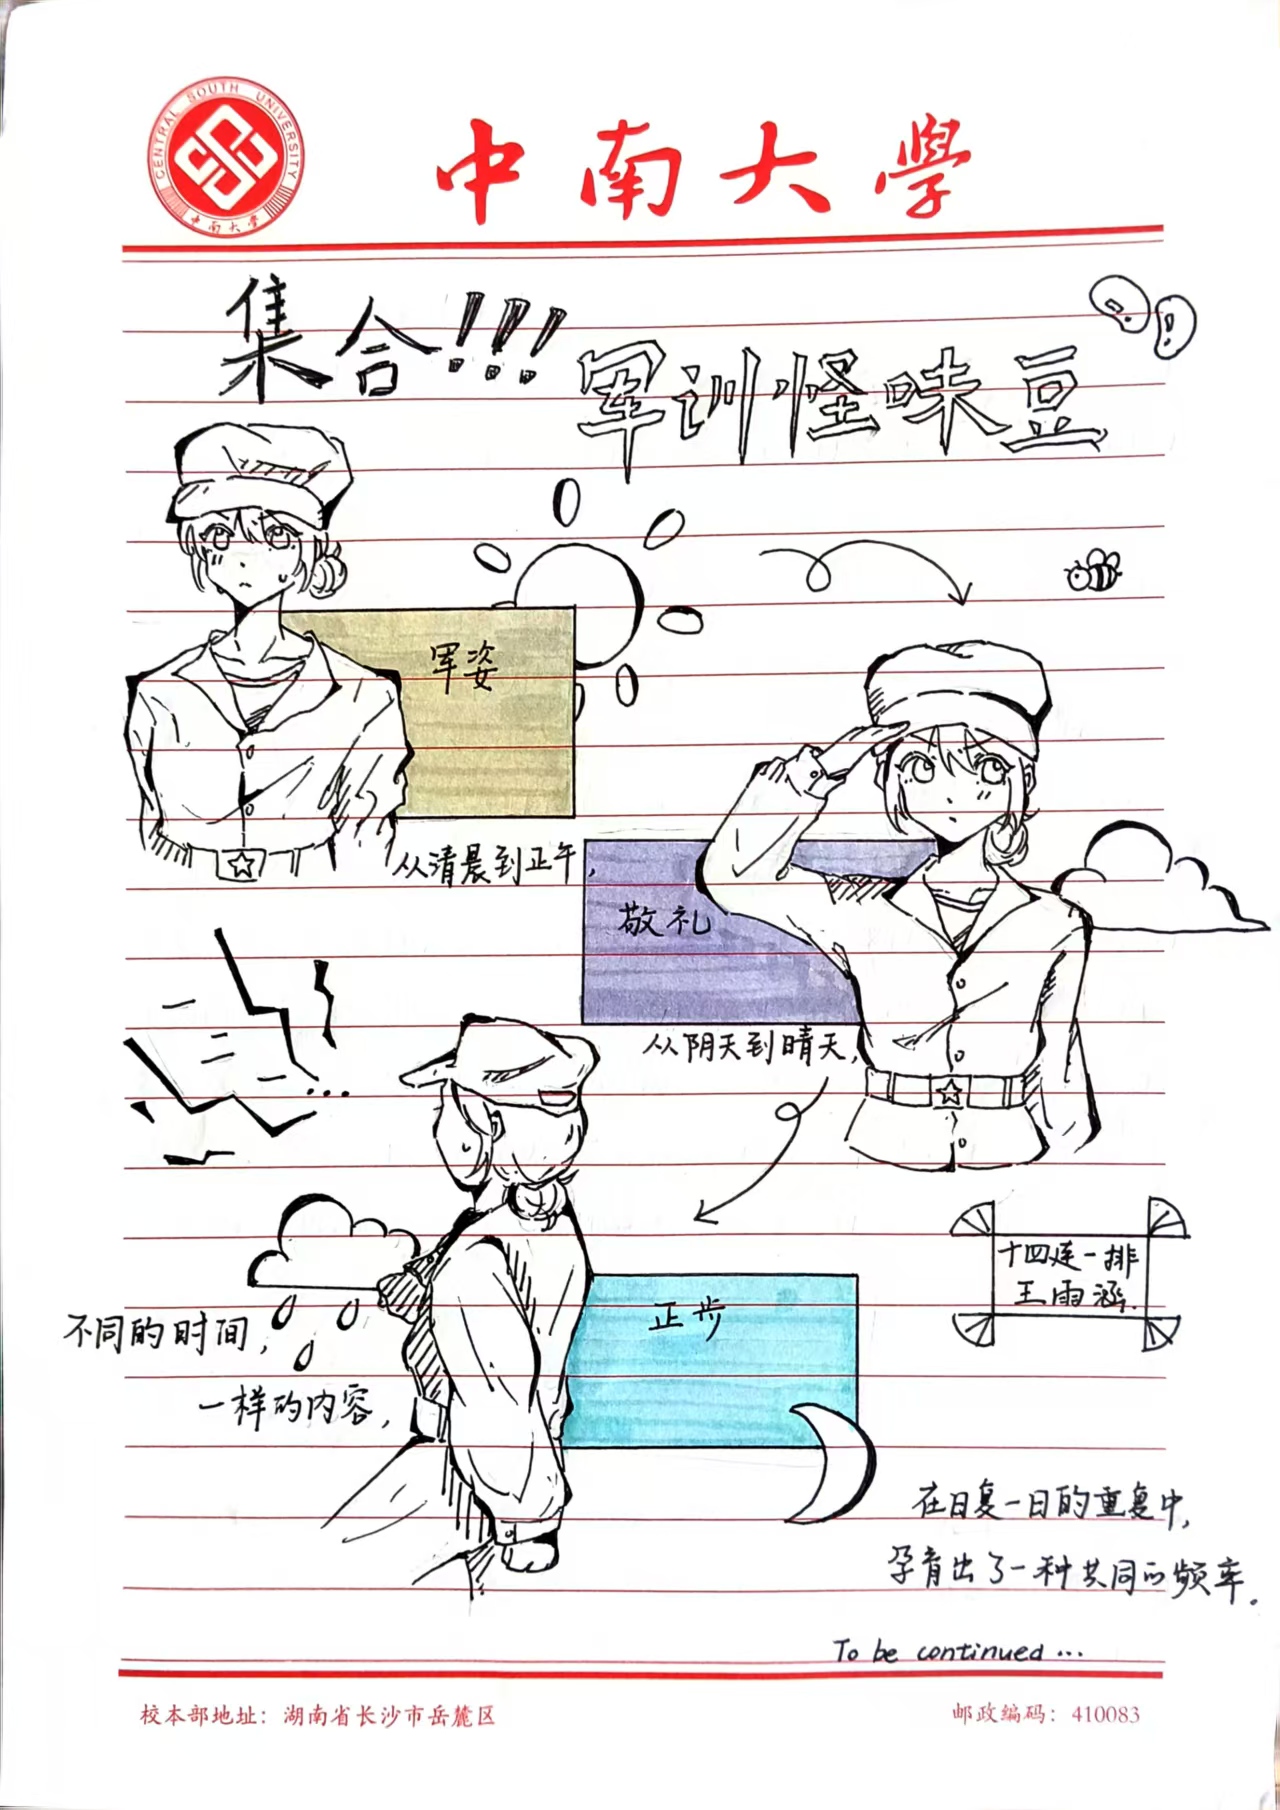 CENTRAL SOUTH UNIVERSITY
中南大學
中南大學
集合!!!
军训怪味豆
军姿
从清晨到正午，
敬礼
从阴天到晴天，
十四连一排
王雨涵.
正步
不同的时间，
一样的内容，
在日复一日的重复中，
孕育出了一种共同的频率。
To be continued...
校本部地址：湖南省长沙市岳麓区
邮政编码：410083